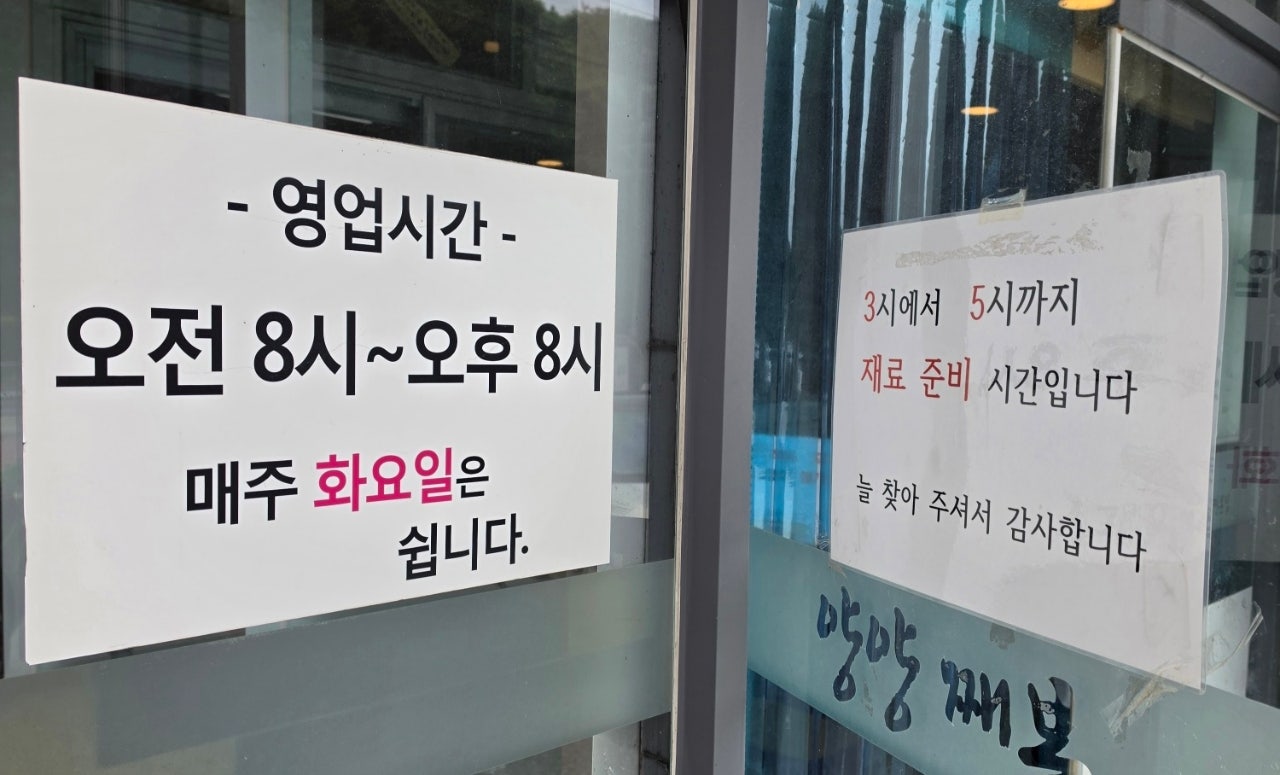 - 영업시간 -
오전 8시~오후 8시
매주 화요일은
쉽니다.
3시에서 5시까지
재료 준비 시간입니다
늘 찾아 주셔서 감사합니다
양양 째보